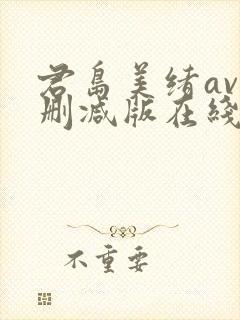 君島美绪av
删减版在綫
不重要